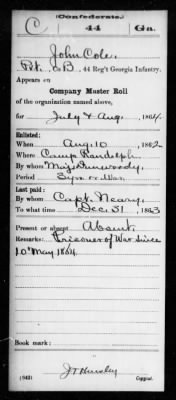 (Confederate.)
C 44 Ga.
John Cole,
Pvt., Co. B, 44 Reg't Georgia Infantry.
Appears on
Company Muster Roll
of the organization named above,
for July & Aug, 1864.
Enlisted:
When Aug. 10, 1862
Where Camp Randolph
By whom Maj. Dunwoody,
Period 3 yrs or War
Last paid:
By whom Capt. Neary,
To what time Dec. 31, 1863
Present or absent Absent
Remarks: Prisoner of War since
10" May 1864.
Book mark:
(642)
Copyist.